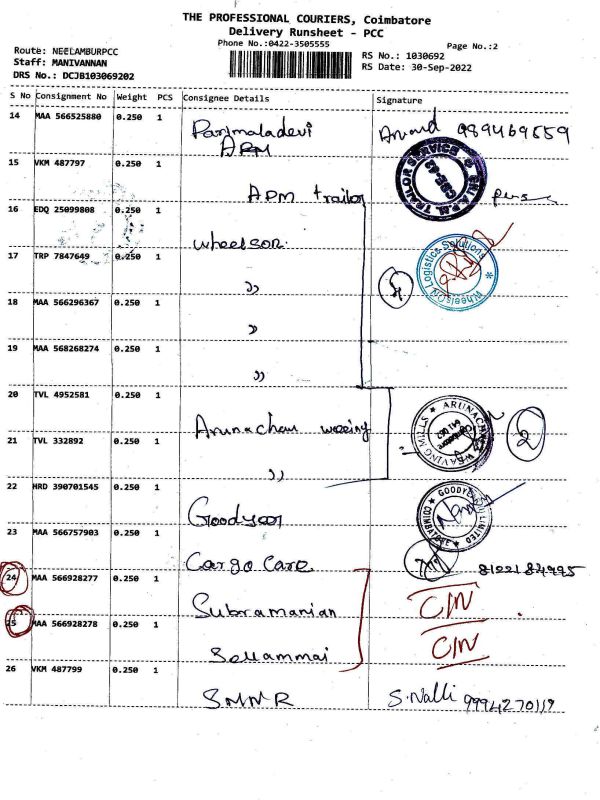 THE PROFESSIONAL COURIERS, Coimbatore
Delivery Runsheet - PCC
Phone No.:0422-3505555
Page No.:2
Route: NEELAMBURPCC
Staff: MANIVANNAN
DRS No.: DCJB103069202
RS No.: 1030692
RS Date: 30-Sep-2022
S No Consignment No Weight PCS Consignee Details Signature
14 MAA 566525880 0.250 1 Parimaladevi
APM
15 VKM 487797 0.250 1 APM trailor
16 EDQ 25099808 0.250 1 wheelson
17 TRP 7847649 0.250 1 "
WheelsOn Logistics Solutions
4
18 MAA 566296367 0.250 1 "
19 MAA 568268274 0.250 1 "
20 TVL 4952581 0.250 1 Arunachau
ARUNACHAU WEAVING MILLS
2
21 TVL 332892 0.250 1 "
22 HRD 390701545 0.250 1 Goodyear
COIMBATORE
23 MAA 566757903 0.250 1 Cargo Care
24 MAA 566928277 0.250 1 Subramanian C/N
25 MAA 566928278 0.250 1 Sellammai C/N
26 VKM 487799 0.250 1 SMNR S.Nalli